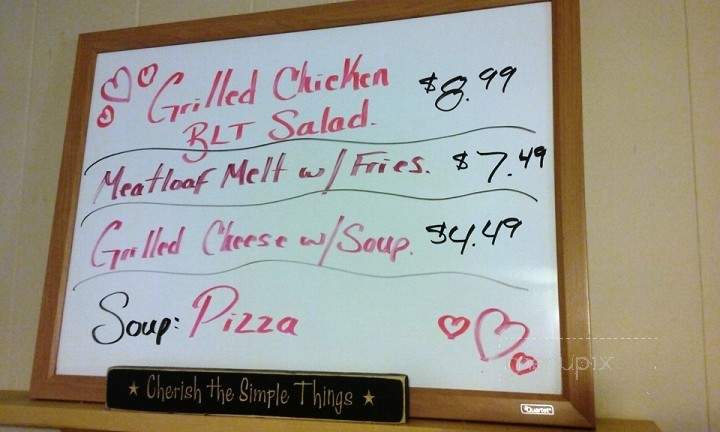 Grilled Chicken $8.99
BLT Salad.
Meatloaf Melt w/ Fries. $7.49
Grilled Cheese w/Soup. $4.49
Soup: Pizza
★ Cherish the Simple Things ★
Quartet